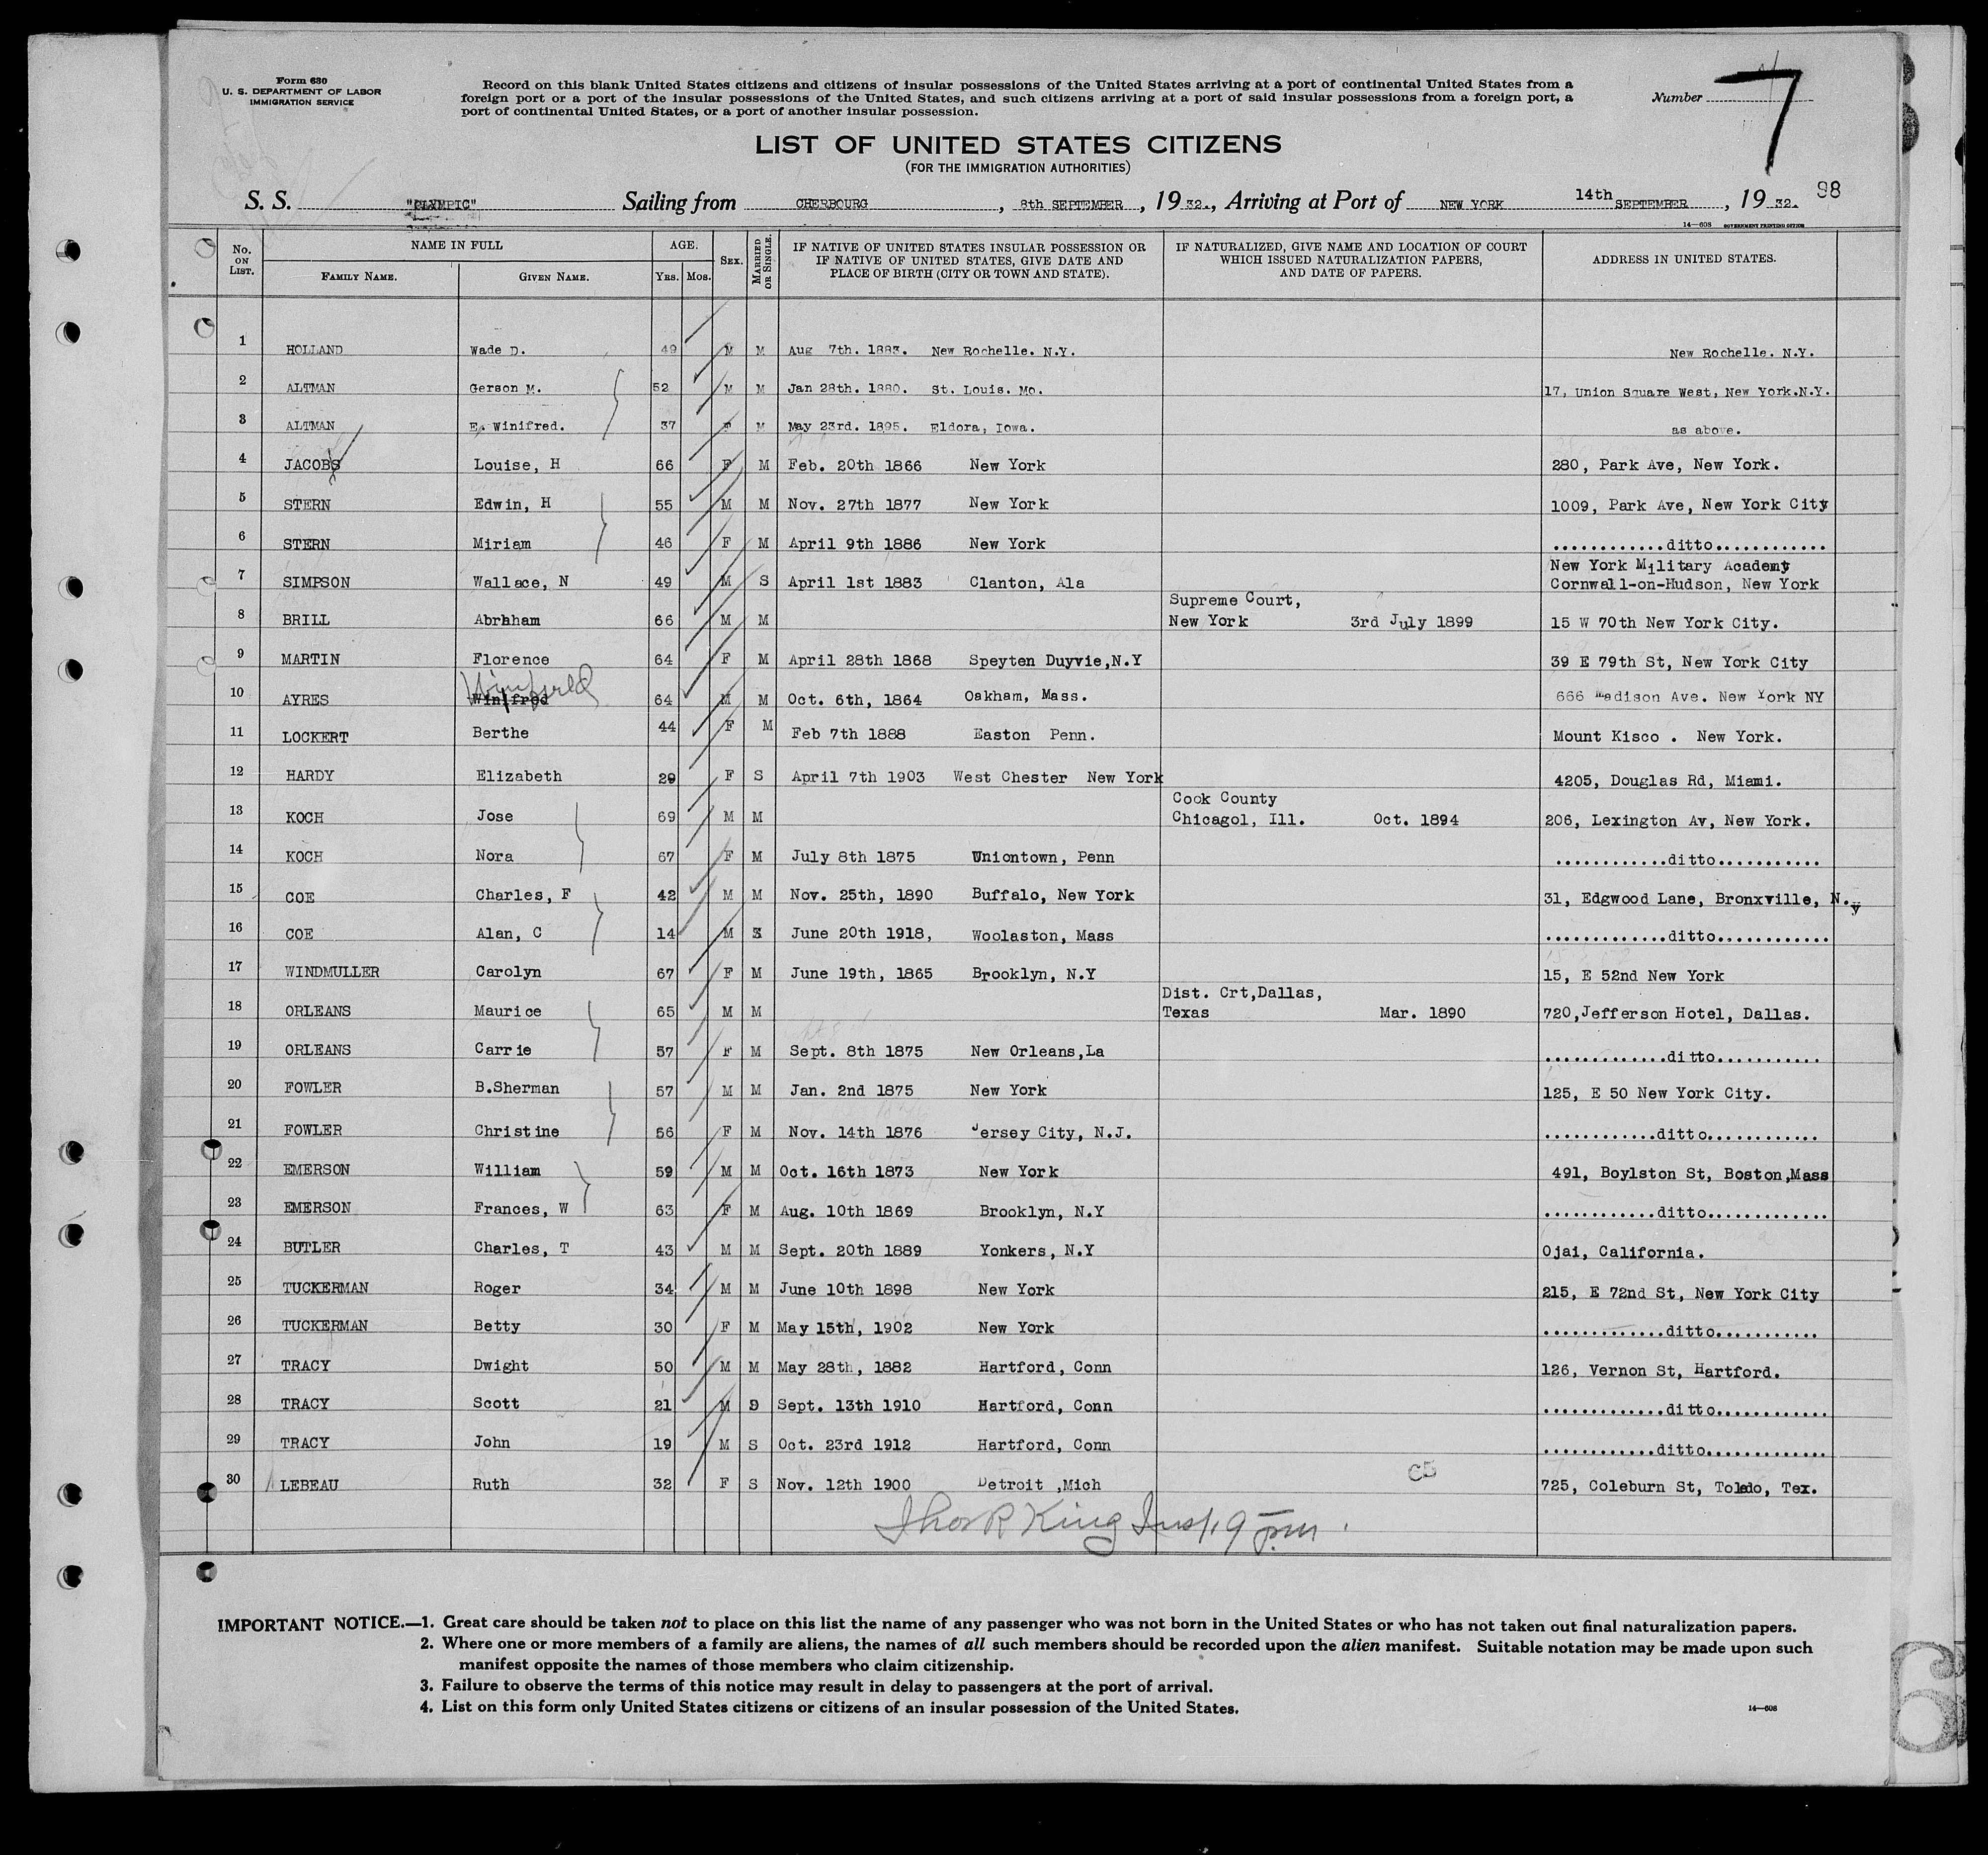 Form 630
U. S. DEPARTMENT OF LABOR
IMMIGRATION SERVICE
Record on this blank United States citizens and citizens of insular possessions of the United States arriving at a port of continental United States from a
foreign port or a port of the insular possessions of the United States, and such citizens arriving at a port of said insular possessions from a foreign port, a
port of continental United States, or a port of another insular possession.
Number 7
LIST OF UNITED STATES CITIZENS
(FOR THE IMMIGRATION AUTHORITIES)
S. S. "OLYMPIC" Sailing from CHERBOURG, 8th SEPTEMBER, 19 32., Arriving at Port of NEW YORK 14th SEPTEMBER, 19 32. 98
14—608 GOVERNMENT PRINTING OFFICE
No. ON LIST. NAME IN FULL FAMILY NAME. GIVEN NAME. AGE. YRS. MOS. SEX. MARRIED OR SINGLE. IF NATIVE OF UNITED STATES INSULAR POSSESSION OR IF NATIVE OF UNITED STATES, GIVE DATE AND PLACE OF BIRTH (CITY OR TOWN AND STATE). IF NATURALIZED, GIVE NAME AND LOCATION OF COURT WHICH ISSUED NATURALIZATION PAPERS, AND DATE OF PAPERS. ADDRESS IN UNITED STATES.
1 HOLLAND Wade D. 49 M M Aug 7th. 1883. New Rochelle. N.Y. New Rochelle. N.Y.
2 ALTMAN Gerson M. 52 M M Jan 28th. 1880. St. Louis. Mo. 17, Union Square West, New York.N.Y.
3 ALTMAN E. Winifred. 37 F M May 23rd. 1895. Eldora, Iowa. as above.
4 JACOBS Louise, H 66 F M Feb. 20th 1866 New York 280, Park Ave, New York.
5 STERN Edwin, H 55 M M Nov. 27th 1877 New York 1009, Park Ave, New York City
6 STERN Miriam 46 F M April 9th 1886 New York ............ditto............
7 SIMPSON Wallace, N 49 M S April 1st 1883 Clanton, Ala New York Military Academy
Cornwall-on-Hudson, New York
8 BRILL Abrhham 66 M M Supreme Court,
New York 3rd July 1899 15 W 70th New York City.
9 MARTIN Florence 64 F M April 28th 1868 Speyten Duyvie,N.Y 39 E 79th St, New York City
10 AYRES Winifred Winfield 64 M M Oct. 6th, 1864 Oakham, Mass. 666 Madison Ave. New York NY
11 LOCKERT Berthe 44 F M Feb 7th 1888 Easton Penn. Mount Kisco . New York.
12 HARDY Elizabeth 29 F S April 7th 1903 West Chester New York 4205, Douglas Rd, Miami.
13 KOCH Jose 69 M M Cook County
Chicagol, Ill. Oct. 1894 206, Lexington Av, New York.
14 KOCH Nora 67 F M July 8th 1875 Uniontown, Penn ............ditto...........
15 COE Charles, F 42 M M Nov. 25th, 1890 Buffalo, New York 31, Edgwood Lane, Bronxville, N.y
16 COE Alan, C 14 M S June 20th 1918, Woolaston, Mass .............ditto............
17 WINDMULLER Carolyn 67 F M June 19th, 1865 Brooklyn, N.Y 15, E 52nd New York
18 ORLEANS Maurice 65 M M Dist. Crt,Dallas,
Texas Mar. 1890 720,Jefferson Hotel, Dallas.
19 ORLEANS Carrie 57 F M Sept. 8th 1875 New Orleans,La .............ditto...........
20 FOWLER B.Sherman 57 M M Jan. 2nd 1875 New York 125, E 50 New York City.
21 FOWLER Christine 56 F M Nov. 14th 1876 Jersey City, N.J. ............ditto............
22 EMERSON William 59 M M Oct. 16th 1873 New York 491, Boylston St, Boston,Mass
23 EMERSON Frances, W 63 F M Aug. 10th 1869 Brooklyn, N.Y ............ditto.............
24 BUTLER Charles, T 43 M M Sept. 20th 1889 Yonkers, N.Y Ojai, California.
25 TUCKERMAN Roger 34 M M June 10th 1898 New York 215, E 72nd St, New York City
26 TUCKERMAN Betty 30 F M May 15th, 1902 New York .............ditto...........
27 TRACY Dwight 50 M M May 28th, 1882 Hartford, Conn 126, Vernon St, Hartford.
28 TRACY Scott 21 M S Sept. 13th 1910 Hartford, Conn .............ditto............
29 TRACY John 19 M S Oct. 23rd 1912 Hartford, Conn ............ditto.............
30 LEBEAU Ruth 32 F S Nov. 12th 1900 Detroit ,Mich C5 725, Coleburn St, Toledo, Tex.
Thos R King Insp. 9 pm.
IMPORTANT NOTICE.—1. Great care should be taken not to place on this list the name of any passenger who was not born in the United States or who has not taken out final naturalization papers.
2. Where one or more members of a family are aliens, the names of all such members should be recorded upon the alien manifest. Suitable notation may be made upon such
manifest opposite the names of those members who claim citizenship.
3. Failure to observe the terms of this notice may result in delay to passengers at the port of arrival.
4. List on this form only United States citizens or citizens of an insular possession of the United States.
14—608
6